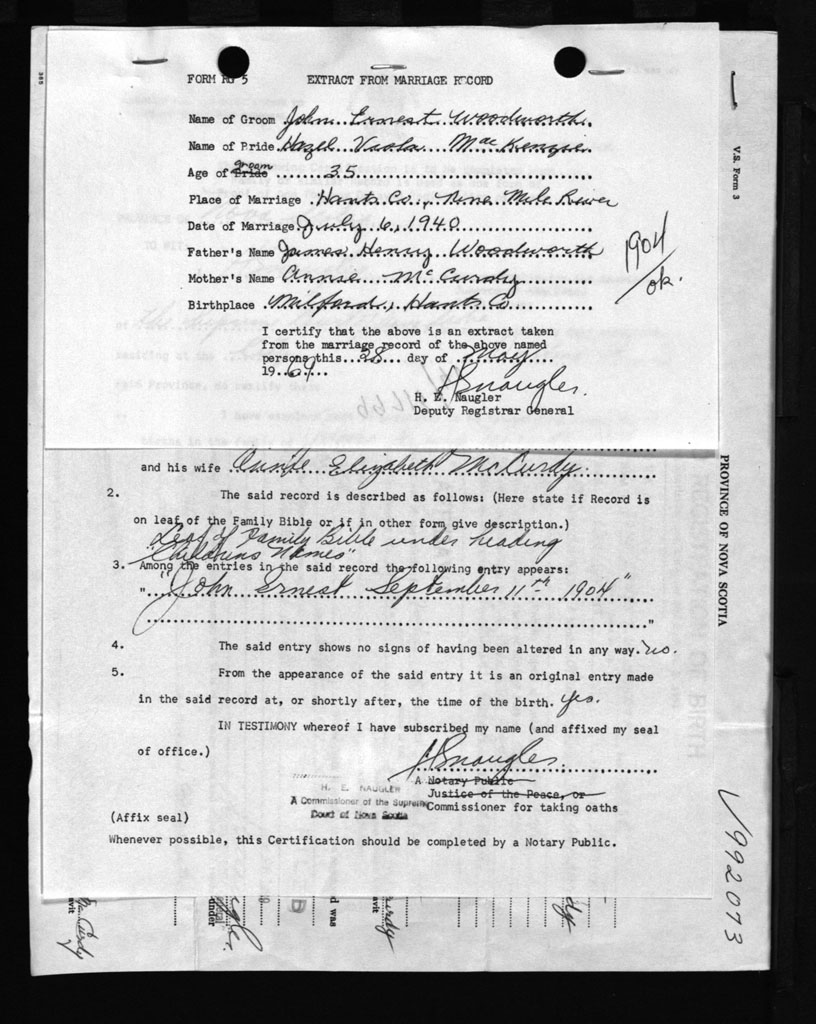 FORM RG 5 EXTRACT FROM MARRIAGE RECORD
Name of Groom John Ernest Woodworth
Name of Bride Hazel Viola MacKenzie
groom
Age of Bride 35
Place of Marriage Hants Co., Nine Mile River
Date of Marriage July 6, 1940
Father's Name James Henry Woodworth
Mother's Name Annie McCurdy
Birthplace Milford, Hants Co
1904
ok.
I certify that the above is an extract taken
from the marriage record of the above named
persons this 28 day of May
1964
HENaugler.
H. E. Naugler
Deputy Registrar General
and his wife Annie Elizabeth McCurdy.
2. The said record is described as follows: (Here state if Record is
on leaf of the Family Bible or if in other form give description.)
Leaf of Family Bible under heading
"Childrens Names"
3. Among the entries in the said record the following entry appears:
"John Ernest September 11th 1904"
"
4. The said entry shows no signs of having been altered in any way. no.
5. From the appearance of the said entry it is an original entry made
in the said record at, or shortly after, the time of the birth. yes.
IN TESTIMONY whereof I have subscribed my name (and affixed my seal
of office.)
HENaugler.
A Notary Public
Justice of the Peace, or
Commissioner for taking oaths
H. E. NAUGLER
A Commissioner of the Supreme
Court of Nova Scotia
(Affix seal)
Whenever possible, this Certification should be completed by a Notary Public.
V.S. Form 3
PROVINCE OF NOVA SCOTIA
V992073
McCurdy
avit
under
d was
urdy
avit
dy